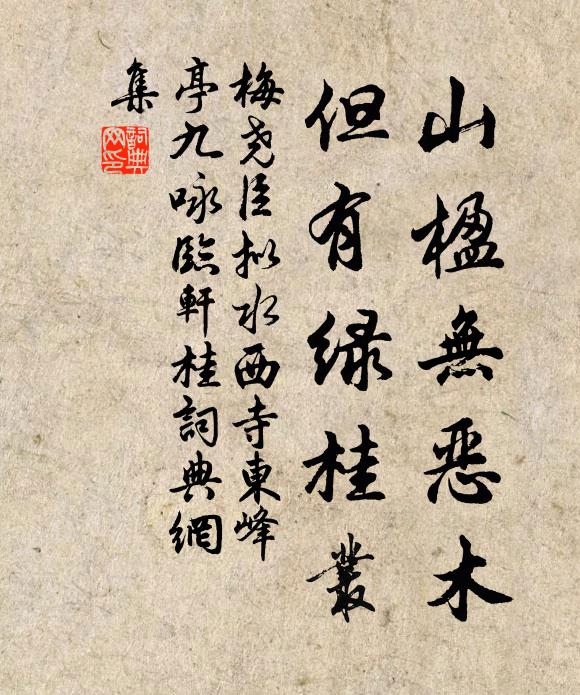 山楹無惡木
但有绿桂叢
梅堯臣拟水西寺東峰
亭九咏臨軒桂詞典網
集
詞典網印